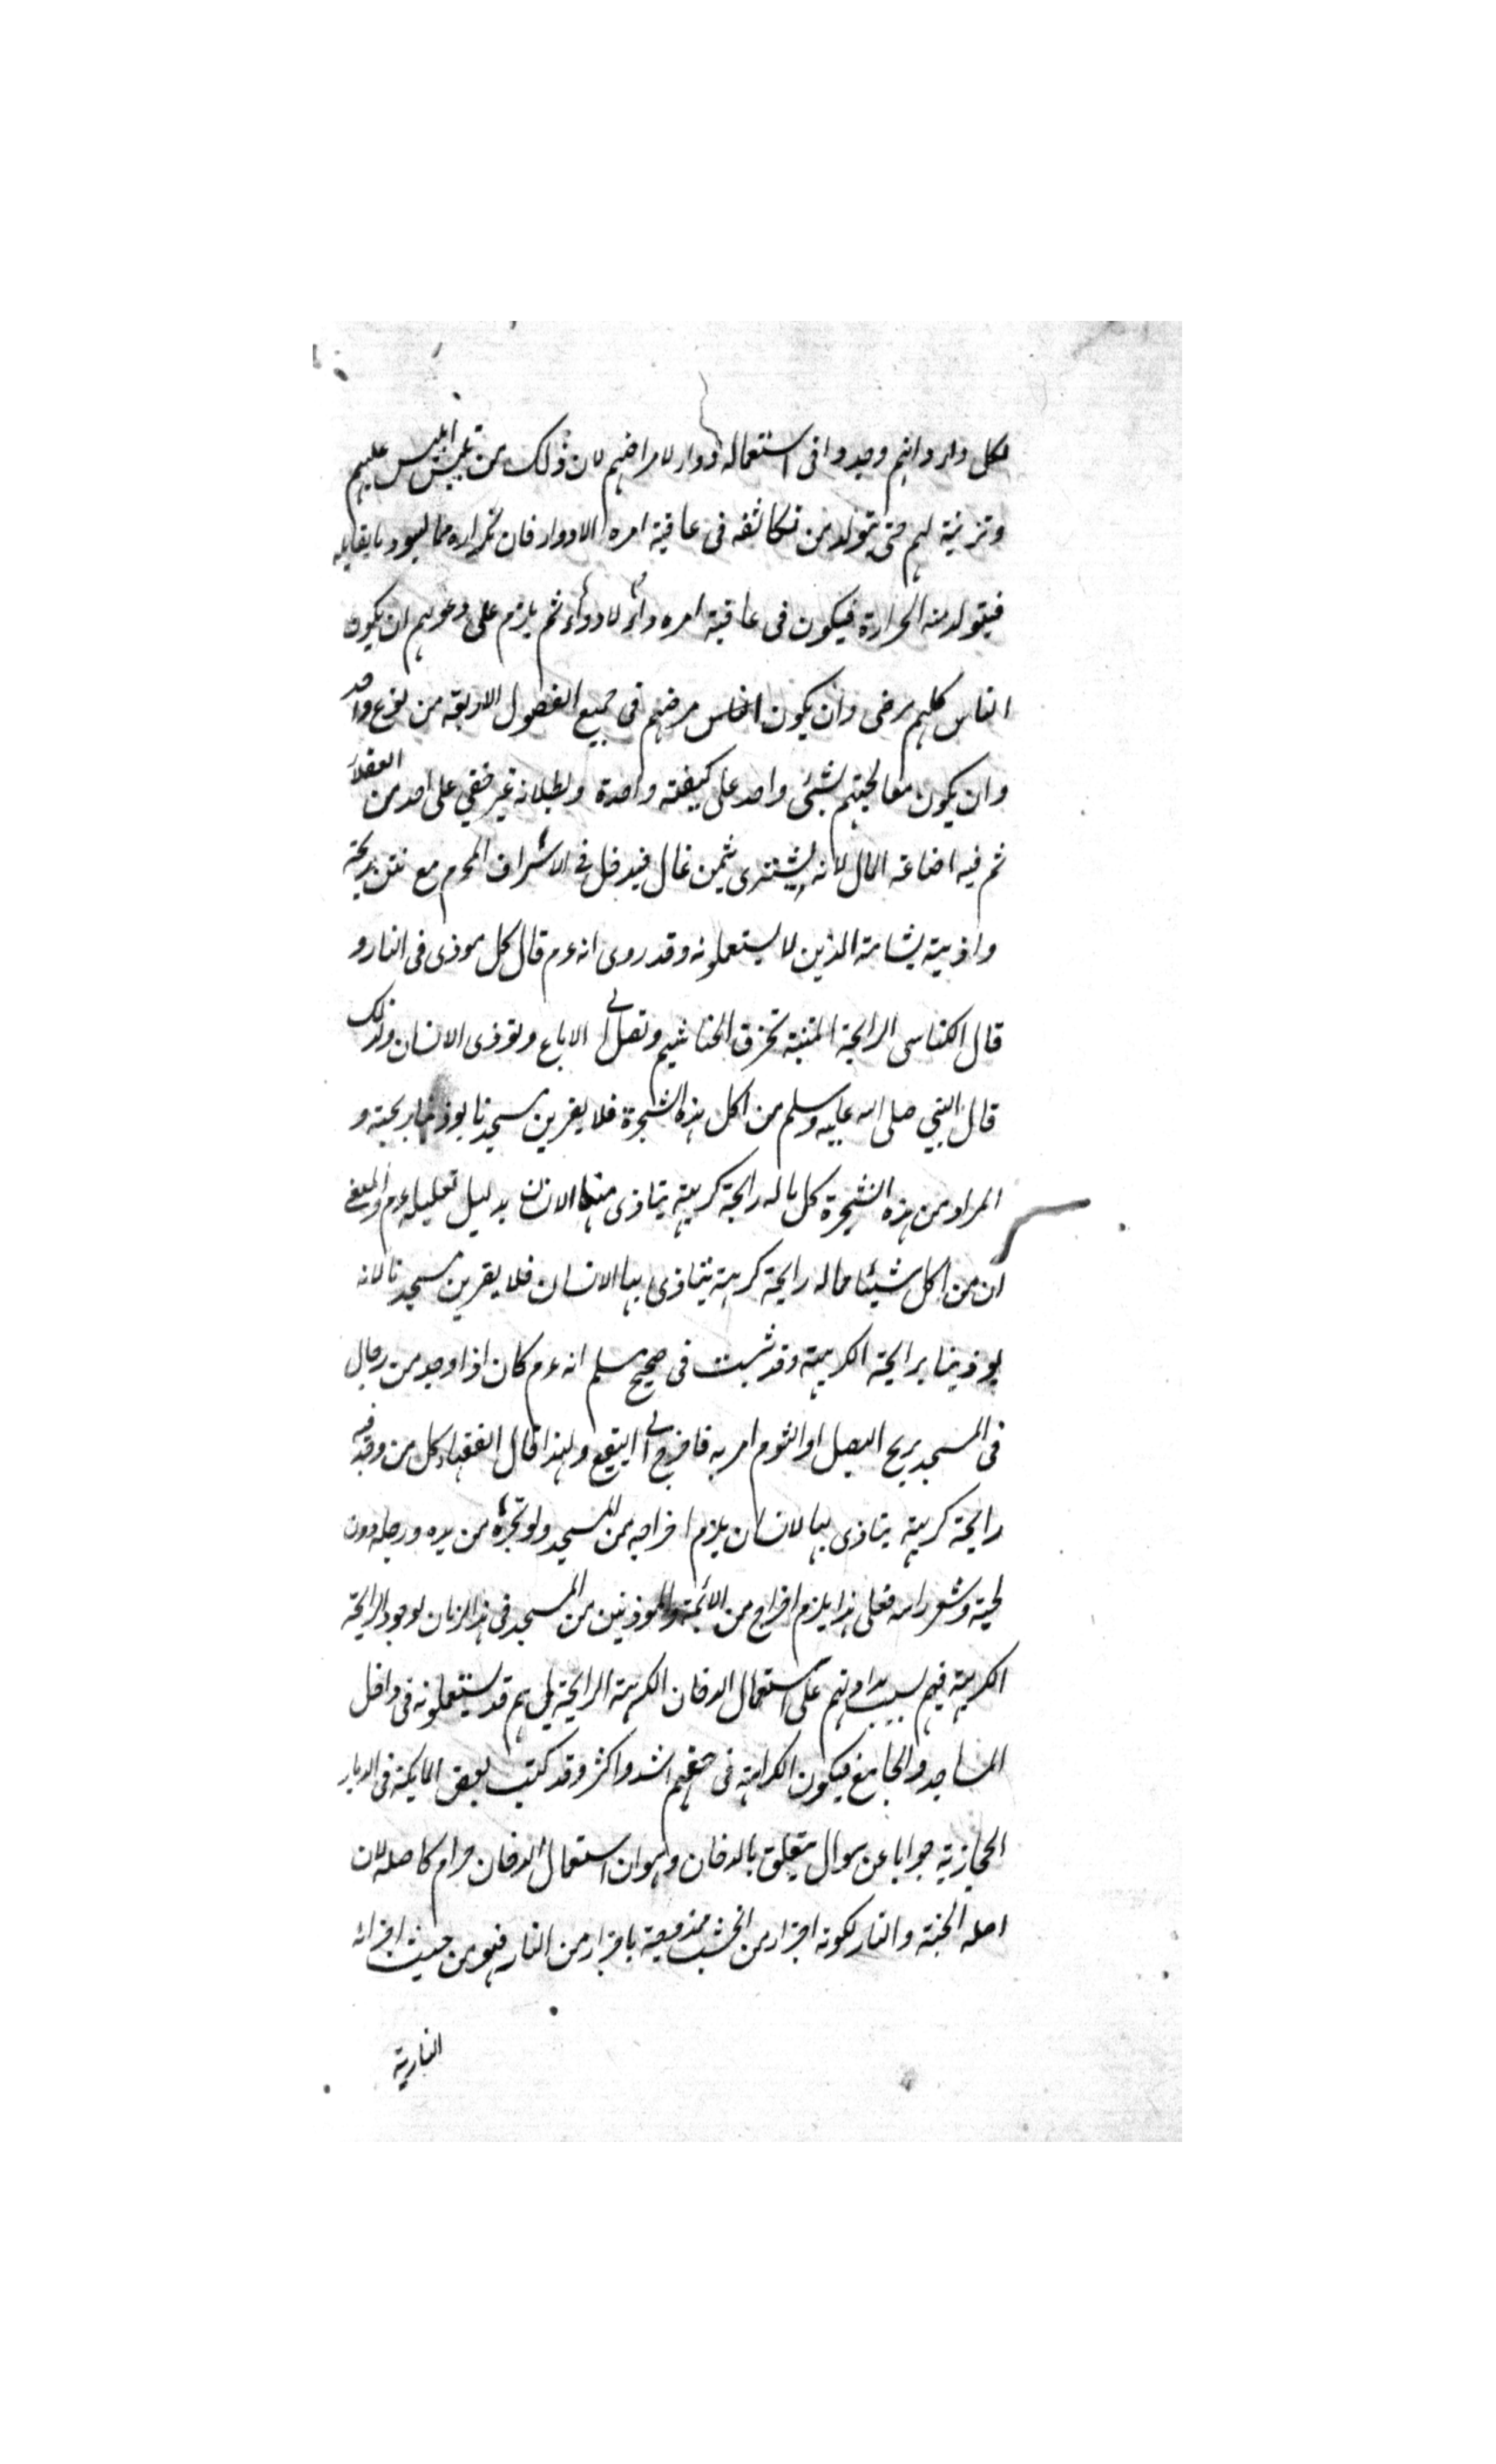 لكل داء وانهم وجدوا فى استعماله دواء لامراضهم لان ذلك من تلبيس ابليس عليهم
وتزيينه لهم حتى يتولد من تكاثفه فى عاقبة امره الادواء فان تكراره مما يسود ما يقابله
فيتولد منه الحرارة فيكون فى عاقبة امره داء لا دواء ثم يلزم على دعويهم ان يكون
الناس كلهم مرضى وان يكون الناس مرضهم فى جميع الفصول الاربعة من نوع واحد
وان يكون معالجتهم بشئ واحد على كيفية واحدة وبطلانه غير خفي على احد من العقلاء
ثم فيه اضاعة المال لانه يشترى بثمن غال فيدخل فى الاسراف المحرم مع نتن ريحته
واذيته بشامة الذين لا يستعملونه وقد روى انه عم قال كل موذى فى النار و
قال الكناسى الرايحة المنتنة تخرق الخناشيم وتصل الى الدماغ وتوذى الانسان ولذلك
قال النبي صلى الله عليه وسلم من اكل هذه الشجرة فلا يقربن مسجدنا يوذينا بريحته و
المراد من هذه الشجرة كل ما له رايحة كريهة يتاذى منها الانسان بدليل تعليله عم والمعنى
ان من اكل شيئا مما له رايحة كريهة يتاذى بها الانسان فلا يقربن مسجدنا لانه
يوذينا برايحة الكريهة وقد ثبت فى صحيح مسلم انه عم كان اذا وجد من رجال
فى المسجد ريح البصل او الثوم امر به فاخرج الى البقيع ولهذا قال الفقهاء كل من وجد فيه
رايحة كريهة يتاذى بها الانسان يلزم اخراجه من المسجد ولو بجره من يده ورجله دون
لحيته وشعر راسه فعلى هذا يلزم اخراج من الائمة والموذنين من المسجد فى هذا الزمان لوجود الرايحة
الكريهة فيهم بسبب مداومتهم على استعمال الدخان الكريهة الرايحة بل هم قد يستعملونه فى داخل
المساجد والجامع فيكون الكراهة فى حقهم اشد واكثر وقد كتب بعض المالكية فى الديار
الحجازية جوابا عن سوال متعلق بالدخان وهو ان استعمال الدخان حرام كاصله لان
اصله الخبثة والنار لكونه اجزاء من الخشب ممزوجة باجزاء من النار فهو من حيث اجزائه
النارية